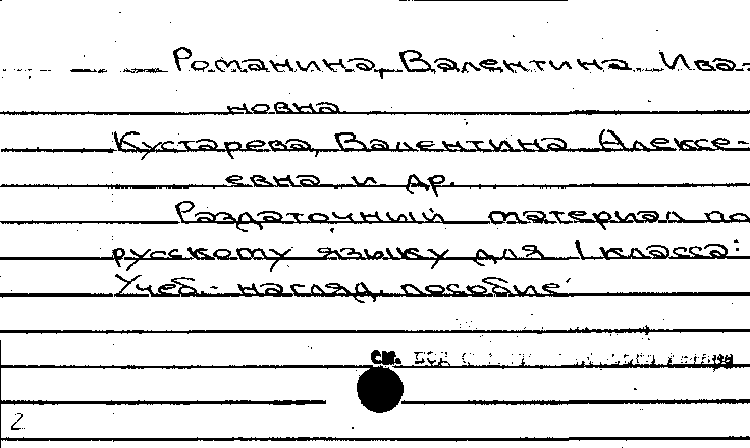 Романина, Валентина Ива-
новна
Кустарева, Валентина Алексе-
евна и др.
Раздаточный материал по
русскому языку для 1 класса:
Учеб.- нагляд. пособие
см.
2